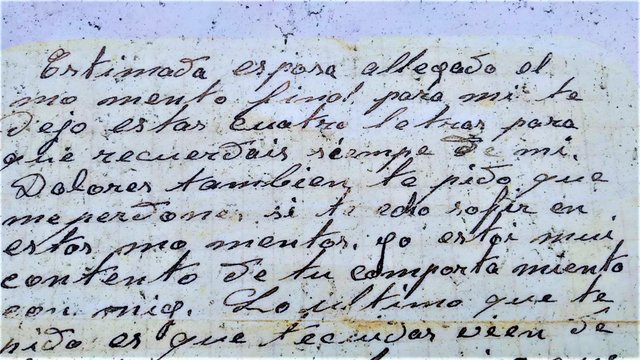 Estimada esposa allegado el
mo mento final para mi te
dejo estas cuatro letras para
que recuerdais siempe de mi.
Dolores tambien te pido que
me perdones si te edo sofrir en
estos mo mentos. yo estoi mui
contento de tu comporta miento
con mig. Lo ultimo que te
pido es que te cuidas vien de